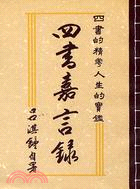 四書的精秀人生的寶鑑
四書嘉言錄
呂淇鐘自署